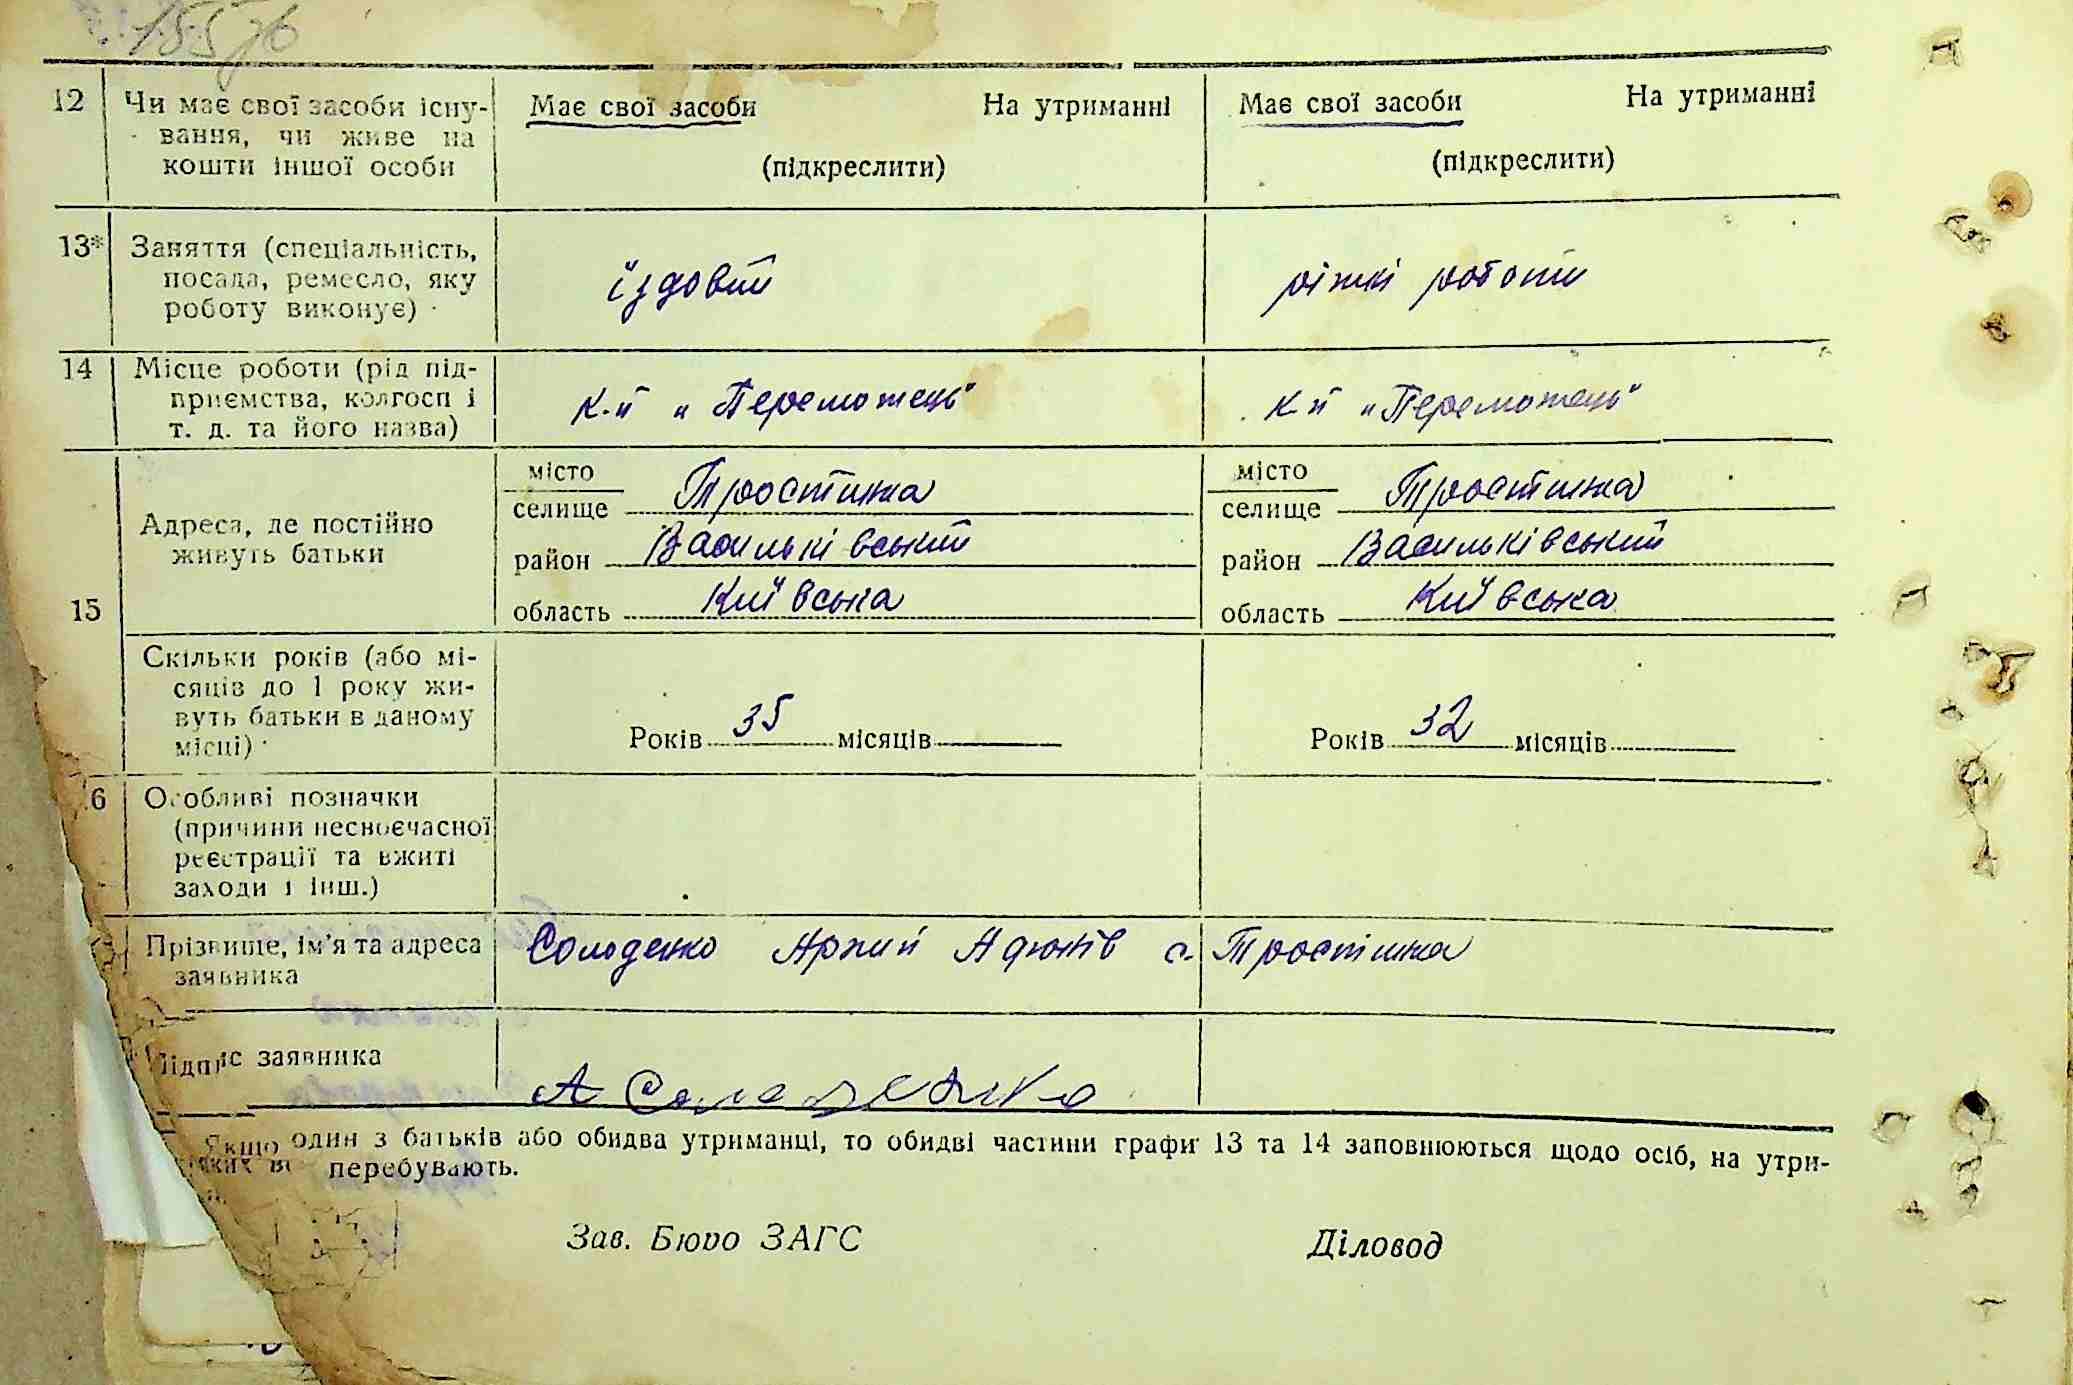 12 Чи має свої засоби існу-
вання, чи живе на
кошти іншої особи
Має свої засоби На утриманні
(підкреслити)
Має свої засоби На утриманні
(підкреслити)
13* Заняття (спеціальність,
посада, ремесло, яку
роботу виконує)
їздовий
ріжні роботи
14 Місце роботи (рід під-
приємства, колгосп і
т. д. та його назва)
к-п „Переможець"
к-п „Переможець"
15
Адреса, де постійно
живуть батьки
місто
селище Тростинка
район Васильківський
область Київська
місто
селище Тростинка
район Васильківський
область Київська
Скільки років (або мі-
сяців до 1 року жи-
вуть батьки в даному
місці)
Років 35 місяців
Років 32 місяців
6 Особливі позначки
(причини несвоєчасної
реєстрації та вжиті
заходи і інш.)
Прізвище, ім'я та адреса
заявника
Солоденко с. Тростінка
Підпис заявника
А Солоденко
Якщо один з батьків або обидва утриманці, то обидві частини графи 13 та 14 заповнюються щодо осіб, на утри-
яких перебувають.
Зав. Бюро ЗАГС Діловод